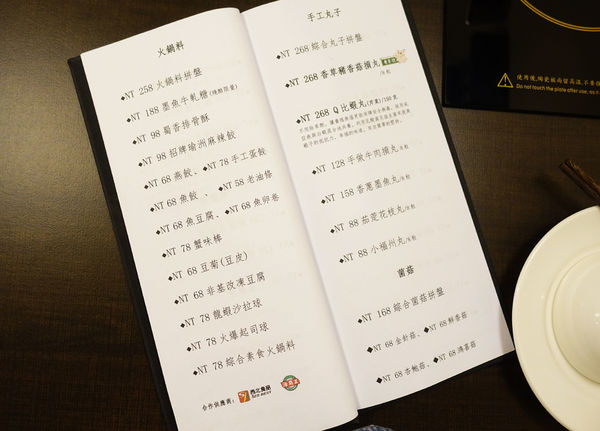 火鍋料
◆NT 258 火鍋料拼盤
◆NT 188 墨魚牛軋糖(辣醬限量)
◆NT 98 蜀香排骨酥
◆NT 98 招牌瑜洲麻辣餃
◆NT 68 燕餃、◆NT 78 手工蛋餃
◆NT 68 魚餃 、 ◆NT 58 老油條
◆NT 68 魚豆腐、◆NT 68 魚卵卷
◆NT 78 蟹味棒
◆NT 68 豆菊(豆皮)
◆NT 68 非基改凍豆腐
◆NT 78 龍蝦沙拉球
◆NT 78 火爆起司球
◆NT 78 綜合素食火鍋料
合作供應商:
西北食品
手工丸子
◆NT 268 綜合丸子拼盤
◆NT 268 香草豬香菇摃丸
◆NT 268 Q 比蝦丸
◆NT 128 手做牛肉摃丸
◆NT 158 香蔥墨魚丸
◆NT 88 茄萣花枝丸
◆NT 88 小福州丸
菌菇
◆NT 168 綜合菌菇拼盤
◆NT 68 金針菇、◆NT 68 鮮香菇
◆NT 68 杏鮑菇、◆NT 68 鴻喜菇
Do not touch the plate after use, as